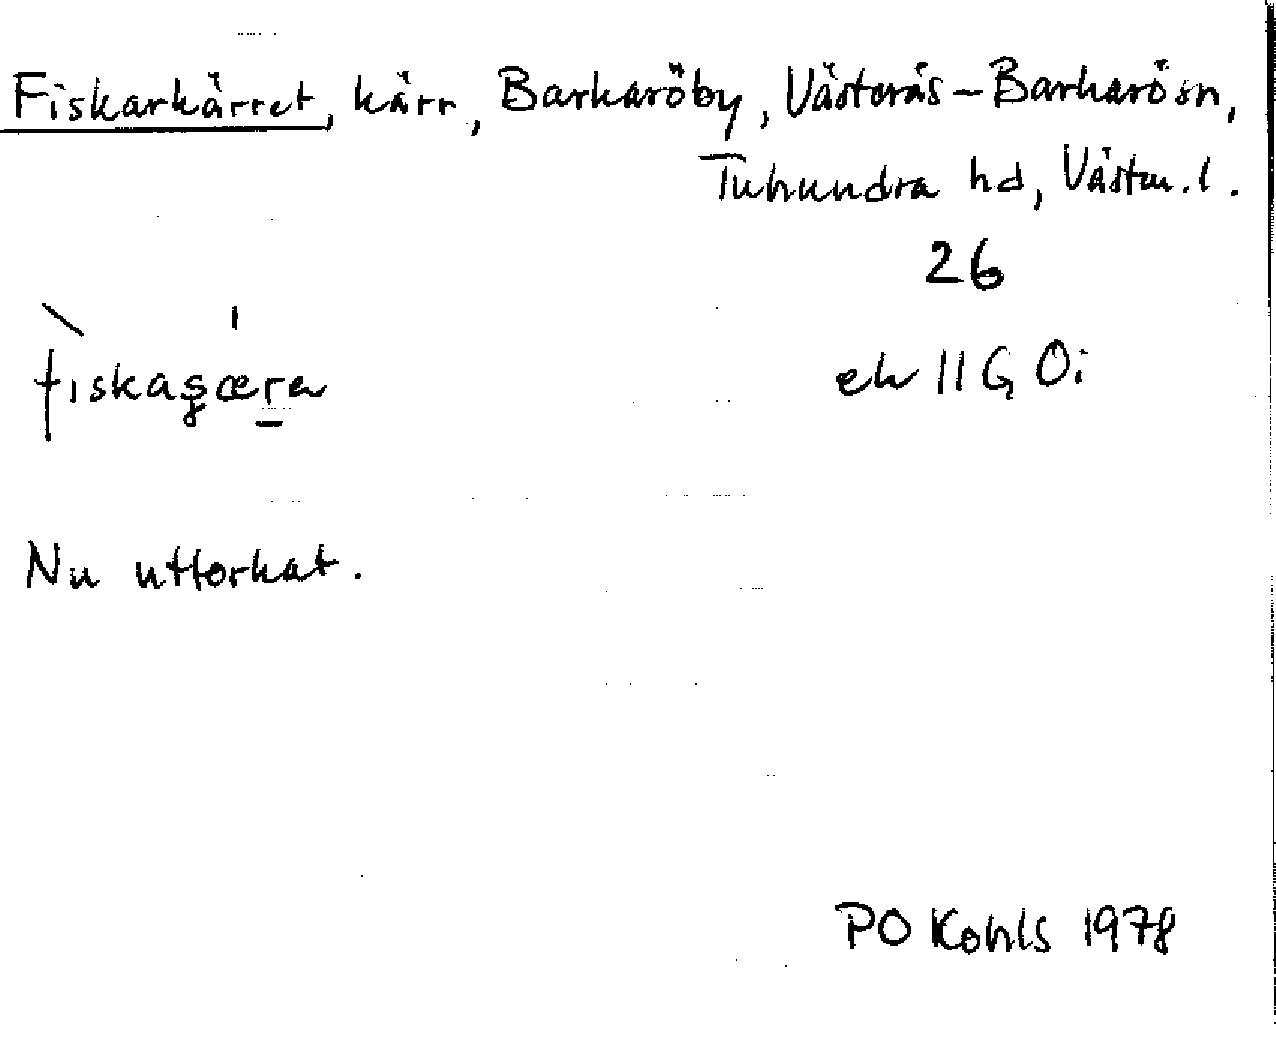 Fiskarkärret, kärr, Barkaröby, Västerås-Barkarö sn,
Tuhundra hd, Västm. l.
26
ek 11 G 0i
Nu uttorkat.
PO Kohls 1978